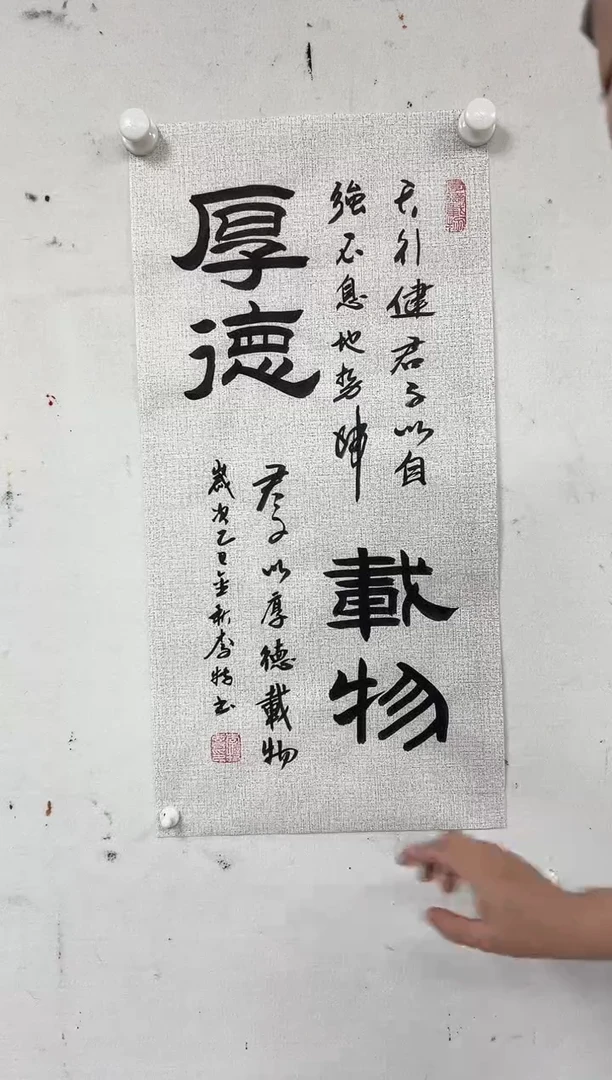 厚德
載物
天行健君子以自
強不息地勢坤
君子以厚德載物
歲次乙巳金秋李书